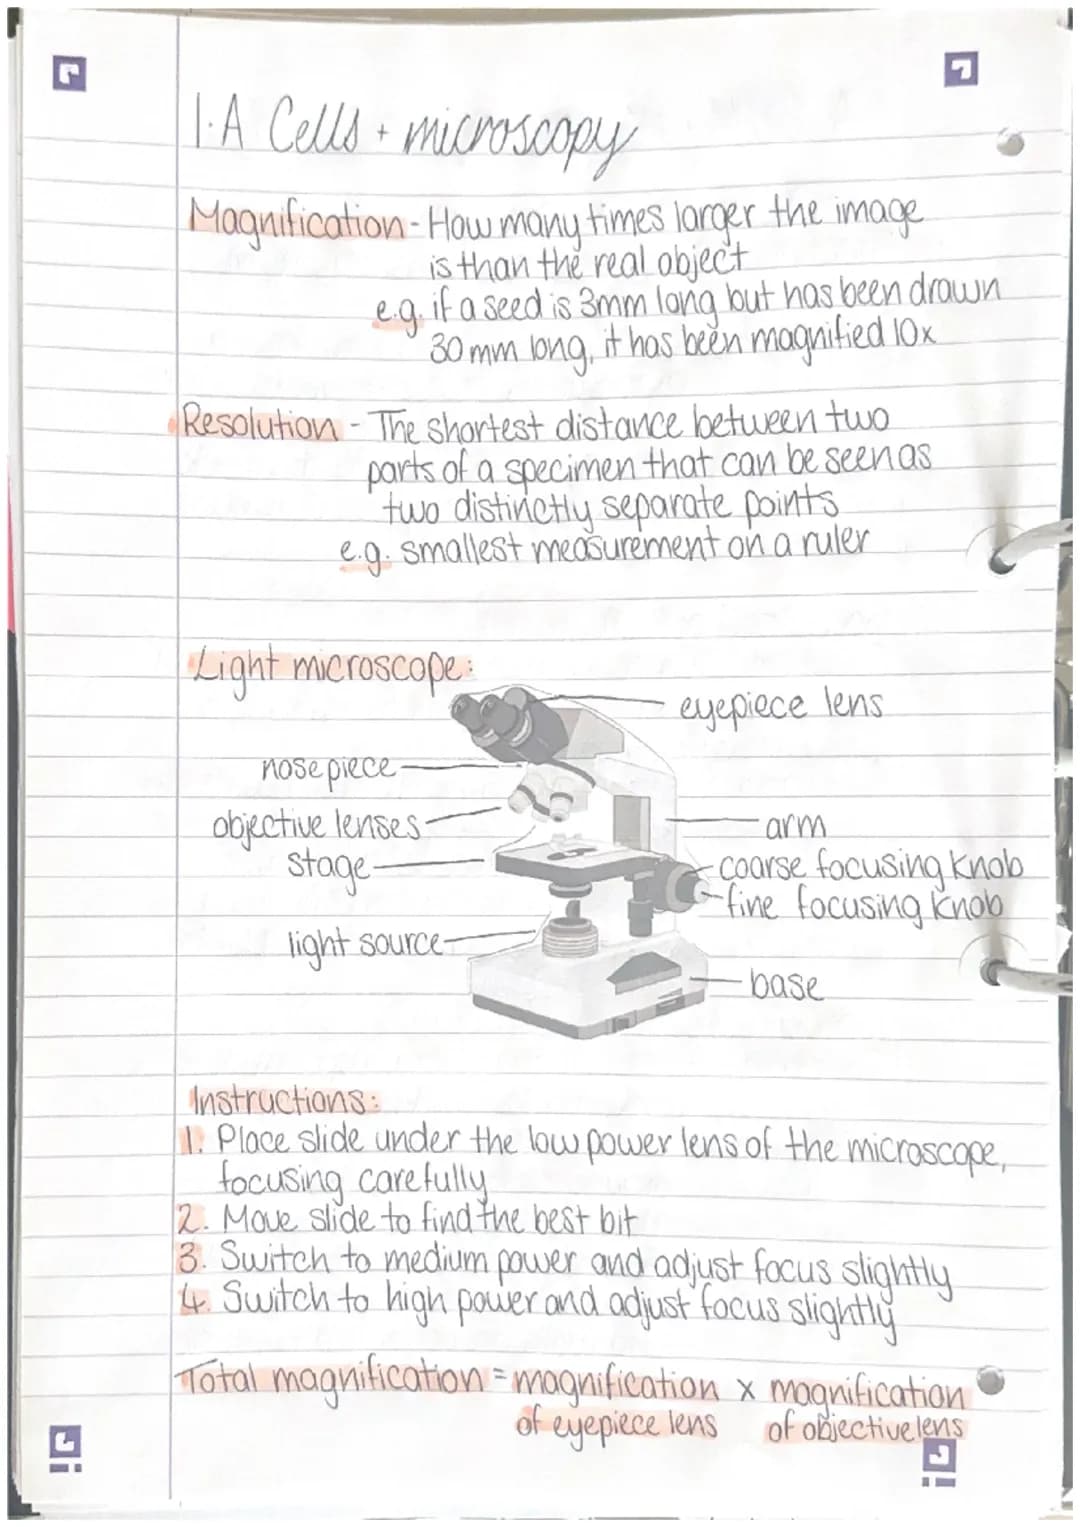 1.A Cells + microscopy
Magnification - How many times larger the image
is than the real object
e.g. if a seed is 3mm long but has been drawn
30mm long, it has been magnified 10x
Resolution - The shortest distance between two
parts of a specimen that can be seen as
two distinctly separate points
e.g. smallest measurement on a ruler
Light microscope:
eyepiece lens
nosepiece
objective lenses
arm
stage
coarse focusing knob
fine focusing knob
light source
base
Instructions:
1. Place slide under the low power lens of the microscope,
focusing carefully
2. Move slide to find the best bit
3. Switch to medium power and adjust focus slightly
4. Switch to high power and adjust focus slightly
Total magnification = magnification x magnification
of eyepiece lens of objective lens